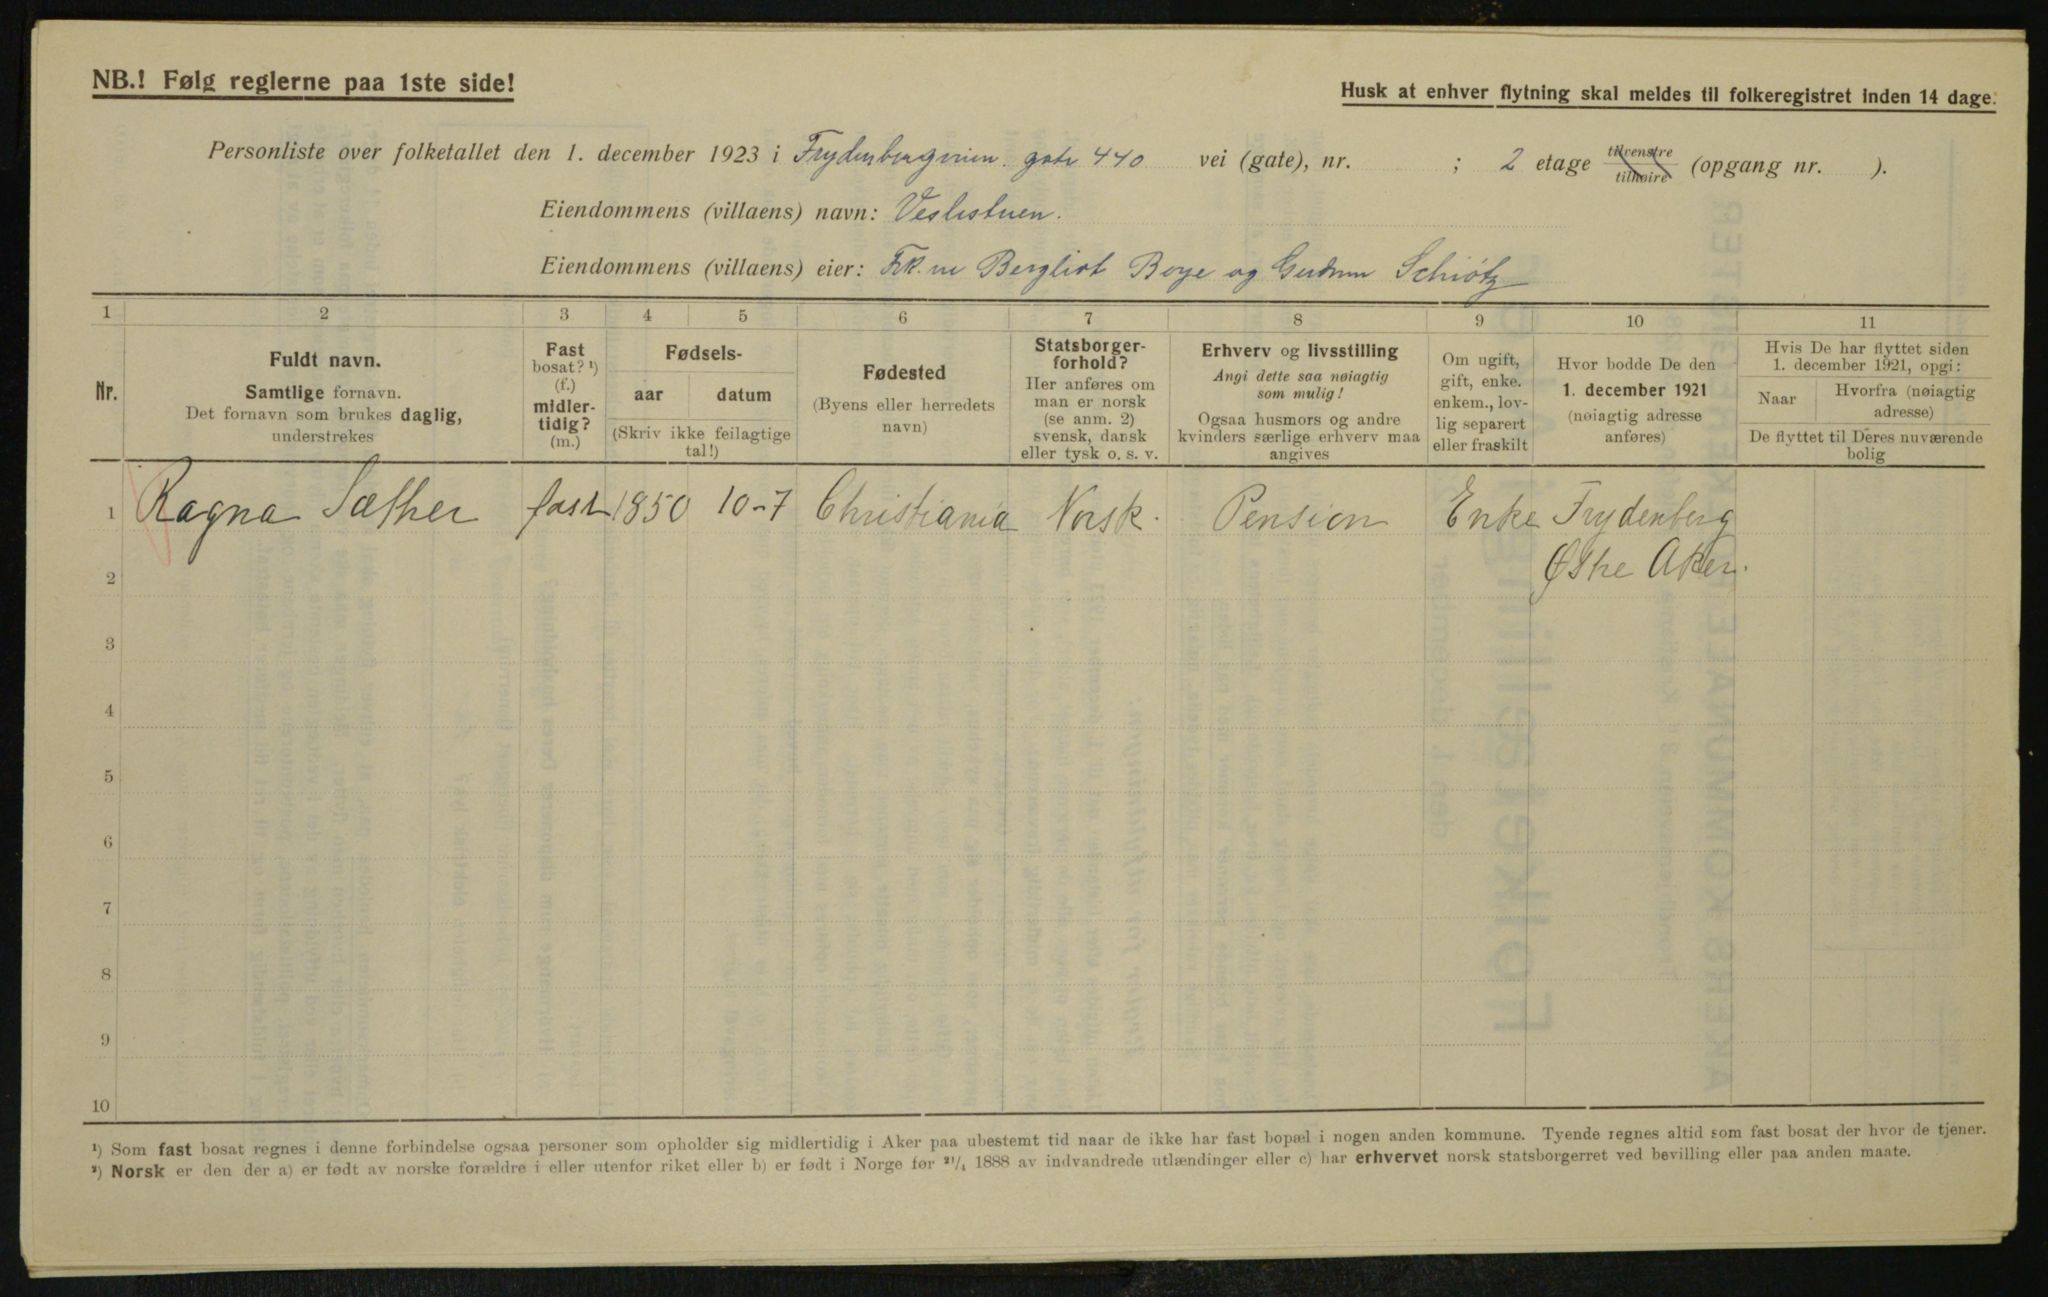 NB.! Følg reglerne paa 1ste side!
Husk at enhver flytning skal meldes til folkeregistret inden 14 dage.
Personliste over folketallet den 1. december 1923 i Frydenbergveien. gate 440 vei (gate), nr. ; 2 etage tilvenstre/tilhøire (opgang nr. ).
Eiendommens (villaens) navn: Veslestuen.
Eiendommens (villaens) eier: Frk.ne Bergliot Boye og Gudrun Schiötz
1 2 3 4 5 6 7 8 9 10 11
Nr.
Fuldt navn.
Samtlige fornavn.
Det fornavn som brukes daglig,
understrekes
Fast
bosat? ¹)
(f.)
midler-
tidig?
(m.)
Fødsels-
aar datum
(Skriv ikke feilagtige
tal!)
Fødested
(Byens eller herredets
navn)
Statsborger-
forhold?
Her anføres om
man er norsk
(se anm. 2)
svensk, dansk
eller tysk o. s. v.
Erhverv og livsstilling
Angi dette saa nøiagtig
som mulig!
Ogsaa husmors og andre
kvinders særlige erhverv maa
angives
Om ugift,
gift, enke.
enkem., lov-
lig separert
eller fraskilt
Hvor bodde De den
1. december 1921
(nøiagtig adresse
anføres)
Hvis De har flyttet siden
1. december 1921, opgi:
Naar
Hvorfra (nøiagtig
adresse)
De flyttet til Deres nuværende
bolig
1 Ragna Sæther fast 1850 10-7 Christiania Norsk. Pension Enke Frydenberg
2 Østre Aker.
3
4
5
6
7
8
9
10
¹) Som fast bosat regnes i denne forbindelse ogsaa personer som opholder sig midlertidig i Aker paa ubestemt tid naar de ikke har fast bopæl i nogen anden kommune. Tyende regnes altid som fast bosat der hvor de tjener.
²) Norsk er den der a) er født av norske forældre i eller utenfor riket eller b) er født i Norge før ²¹/₄ 1888 av indvandrede utlændinger eller c) har erhvervet norsk statsborgerret ved bevilling eller paa anden maate.